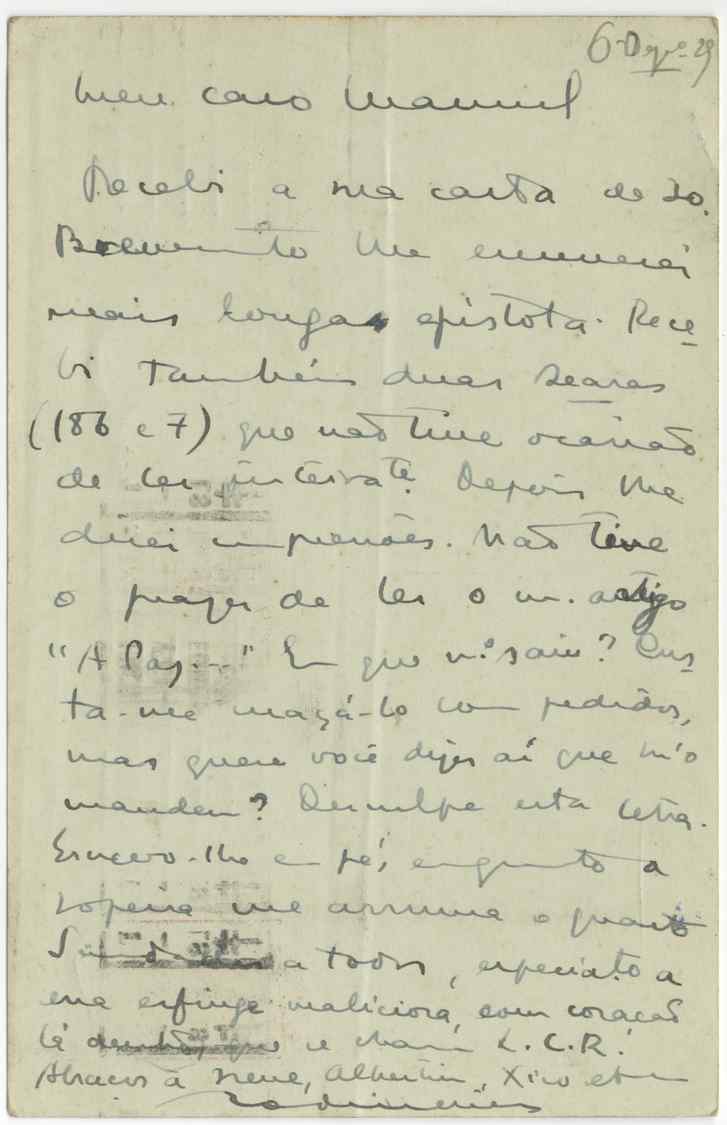 6-Agº-29
Meu caro Manuel
Recebi a sua carta de 30.
Brevemente lhe enviarei
mais longa epístola. Rece-
bi também duas Searas
(186 e 7) que não tive ocasião
de ler inteirate. Depois lhe
direi impressões. Não tive
o prazer de ler o s. artigo
"A Paz..." Em que n.º saiu? Cus-
ta-me maçá-lo com pedidos,
mas quere você dizer aí que m'o
mandem? Desculpe esta letra.
Escrevo-lhe em pé, enquanto a
sopeira me arruma o quarto
Saudades a todos, especiate a
essa esfinge maliciosa, com coração
lá dentro, que se chama L.C.R.
Abraços a Irene, Albertino, Xico et